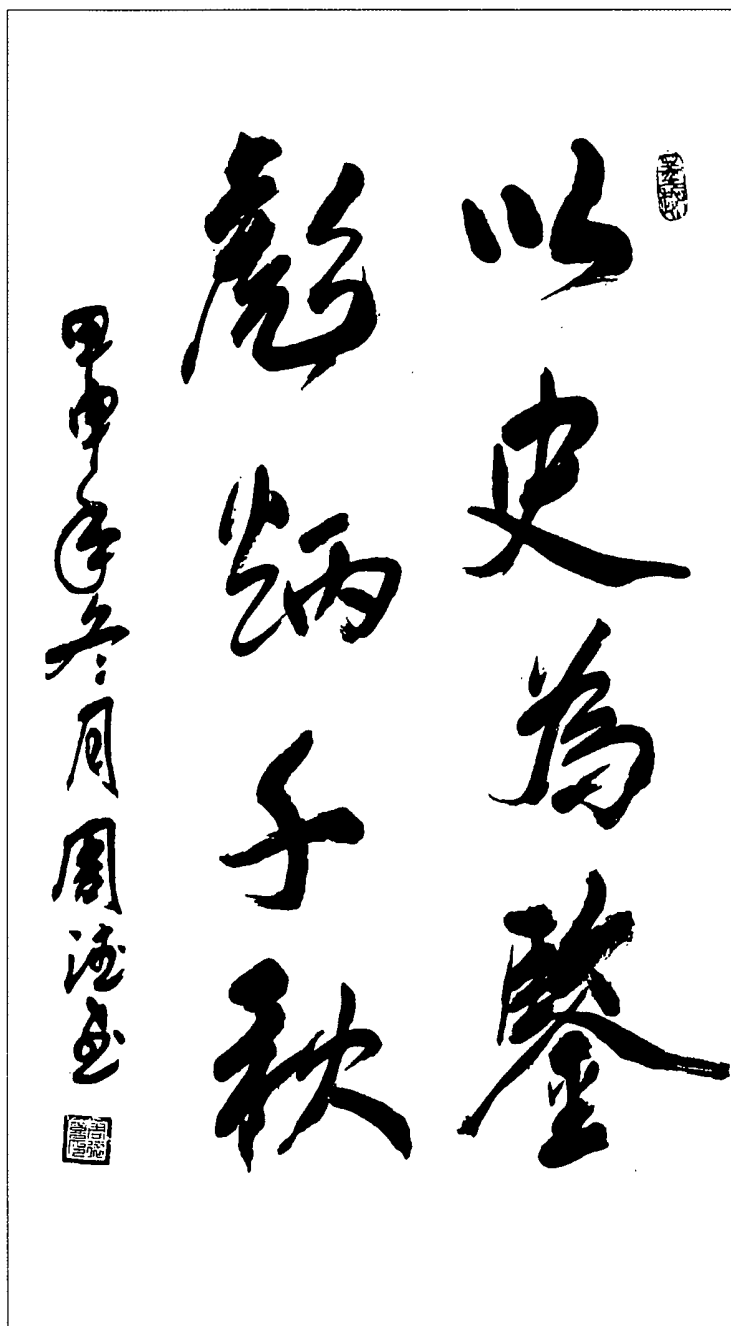 以史為鑒
彪炳千秋
甲申年冬月周